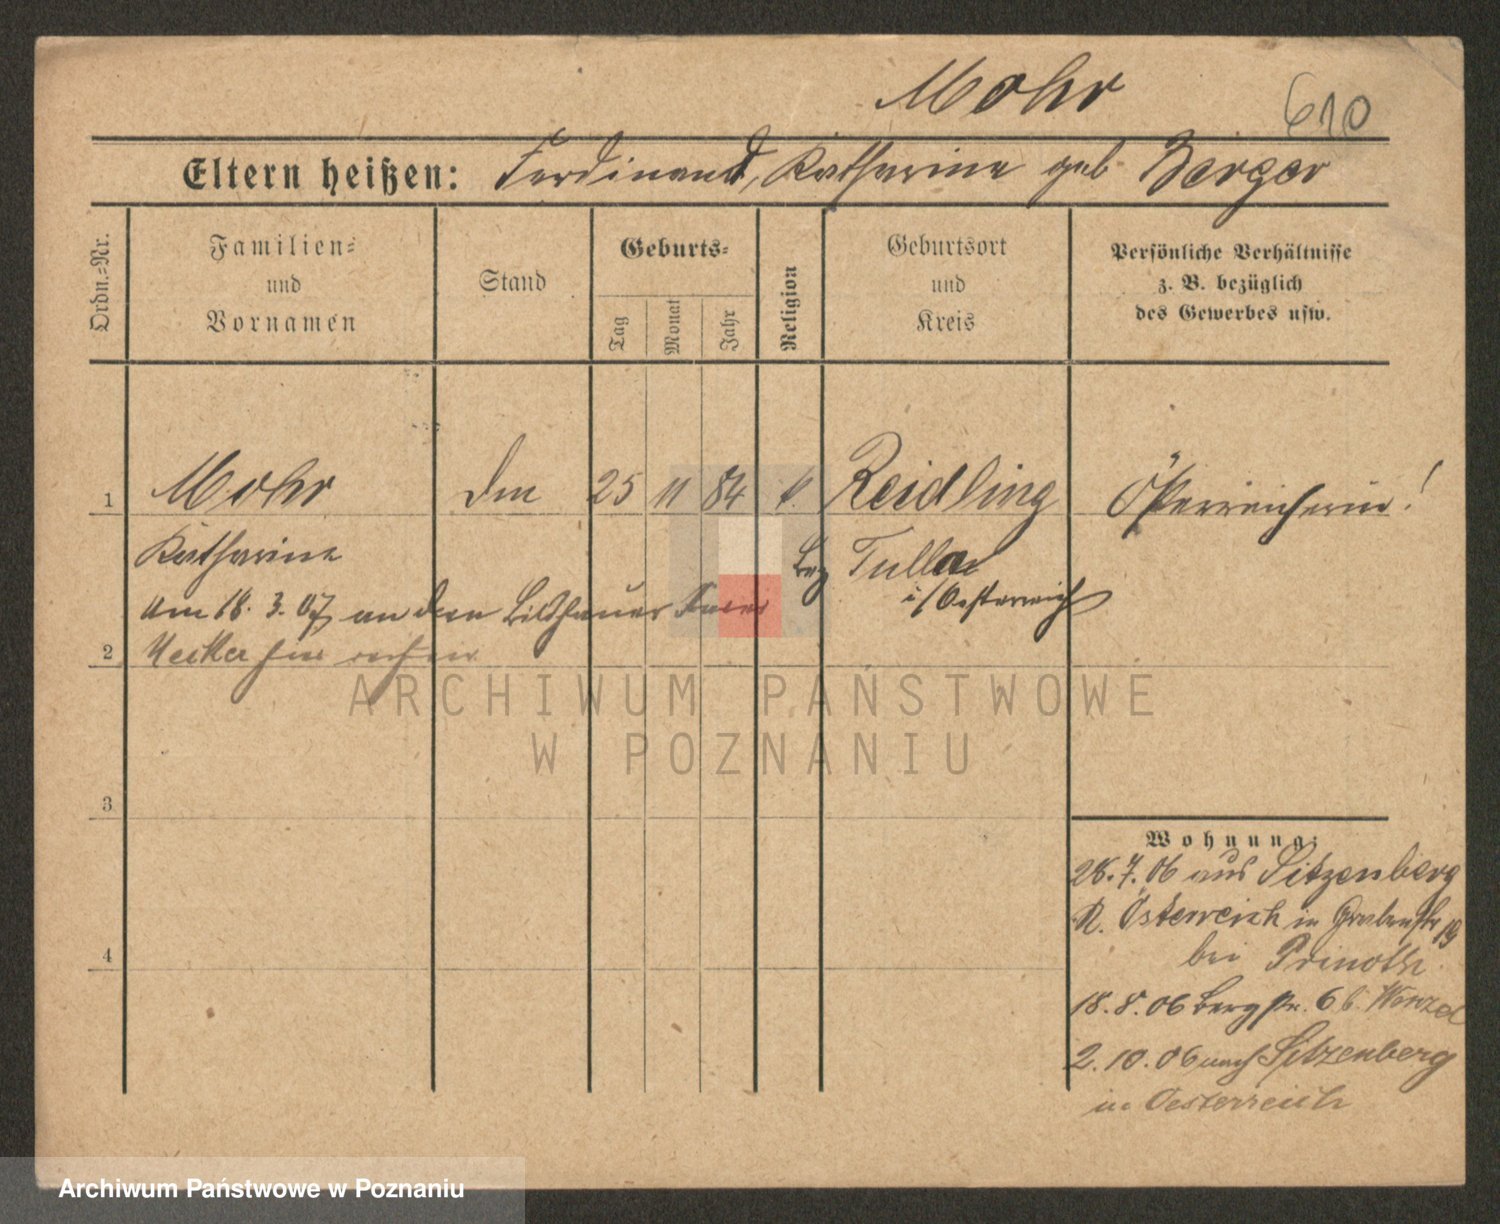 Mohr
610
Eltern heißen: Ferdinand, Katharine geb Berger
Ordn.-Nr.
Familien-
und
Vornamen
Stand
Geburts-
Tag
Monat
Jahr
Religion
Geburtsort
und
Kreis
Persönliche Verhältnisse
z. B. bezüglich
des Gewerbes usw.
1 Mohr 25 11 84 k. Reidling Österreicherin!
Katharine Bez Tulln
i/Oesterreich
Am 18. 3. 07 an den Bildhauer
2
3
4
Wohnung:
28.7.06 aus Sitzenberg
Österreich in Grabenstr 19
bei Prinoth
18.8.06 Bergstr. 6 b. Wenzel
2.10.06 nach Sitzenberg
in Oesterreich
ARCHIWUM PAŃSTWOWE
W POZNANIU
Archiwum Państwowe w Poznaniu